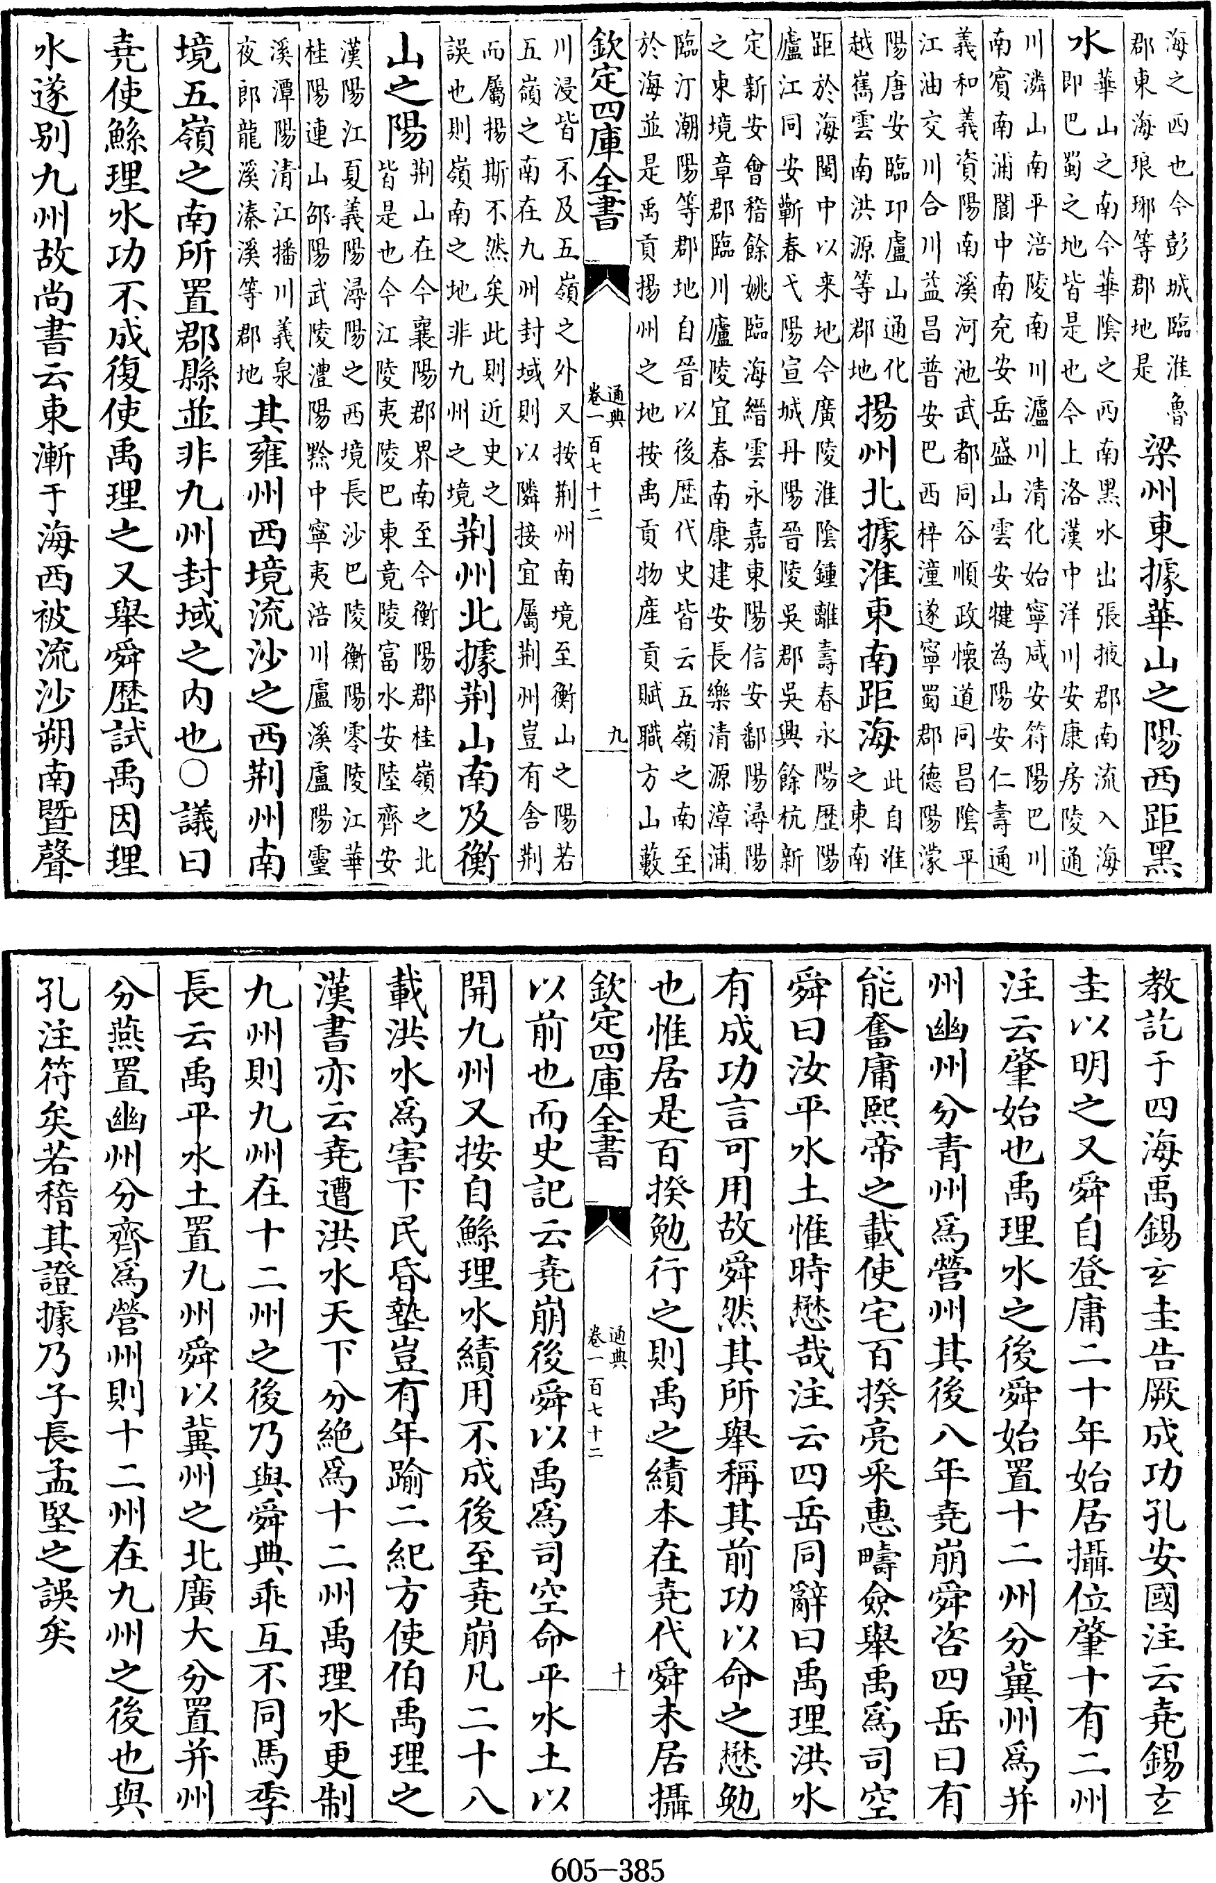 海之西也今彭城臨淮魯
郡東海琅琊等郡地是
梁州東據華山之陽西距黑
水
華山之南今華隂之西南黑水出張掖郡南流入海
即巴蜀之地皆是也今上洛漢中洋川安康房陵通
川潾山南平涪陵南川瀘川清化始寧咸安符陽巴川
南賓南浦閬中南充安岳盛山雲安犍為陽安仁壽通
義和義資陽南溪河池武都同谷順政懷道同昌隂平
江油交川合川益昌普安巴西梓潼遂寧蜀郡德陽濛
陽唐安臨邛盧山通化
越嶲雲南洪源等郡地
揚州北據淮東南距海
此自淮
之東南
距於海閩中以来地今廣陵淮隂鍾離壽春永陽歴陽
廬江同安蘄春弋陽宣城丹陽晉陵吳郡吳興餘杭新
定新安㑹稽餘姚臨海縉雲永嘉東陽信安鄱陽潯陽
之東境章郡臨川廬陵宜春南康建安長樂清源漳浦
臨汀潮陽等郡地自晉以後歴代史皆云五嶺之南至
於海並是禹貢揚州之地按禹貢物産貢賦職方山藪
欽定四庫全書
通典
卷一百七十二
九
川浸皆不及五嶺之外又按荆州南境至衡山之陽若
五嶺之南在九州封域則以隣接宜屬荆州豈有舍荆
而屬揚斯不然矣此則近史之
誤也則嶺南之地非九州之境
荆州北據荆山南及衡
山之陽
荆山在今襄陽郡界南至今衡陽郡桂嶺之北
皆是也今江陵夷陵巴東竟陵富水安陸齊安
漢陽江夏義陽潯陽之西境長沙巴陵衡陽零陵江華
桂陽連山邵陽武陵澧陽黔中寧夷涪川盧溪盧陽靈
溪潭陽清江播川義泉
夜郎龍溪溱溪等郡地
其雍州西境流沙之西荆州南
境五嶺之南所置郡縣並非九州封域之内也○議曰
堯使鯀理水功不成復使禹理之又舉舜歴試禹因理
水遂别九州故尚書云東漸于海西被流沙朔南暨聲
教訖于四海禹錫玄圭告厥成功孔安國注云堯錫玄
圭以明之又舜自登庸二十年始居攝位肇十有二州
注云肇始也禹理水之後舜始置十二州分冀州爲并
州幽州分青州爲營州其後八年堯崩舜咨四岳曰有
能奮庸熙帝之載使宅百揆亮采惠疇僉舉禹爲司空
舜曰汝平水土惟時懋哉注云四岳同辭曰禹理洪水
有成功言可用故舜然其所舉稱其前功以命之懋勉
也惟居是百揆勉行之則禹之績本在堯代舜未居攝
欽定四庫全書
通典
卷一百七十二
十
以前也而史記云堯崩後舜以禹爲司空命平水土以
開九州又按自鯀理水績用不成後至堯崩凡二十八
載洪水爲害下民昏墊豈有年踰二紀方使伯禹理之
漢書亦云堯遭洪水天下分絶爲十二州禹理水更制
九州則九州在十二州之後乃與舜典乖互不同馬季
長云禹平水土置九州舜以冀州之北廣大分置并州
分燕置幽州分齊爲營州則十二州在九州之後也與
孔注符矣若稽其證據乃子長孟堅之誤矣
605-385